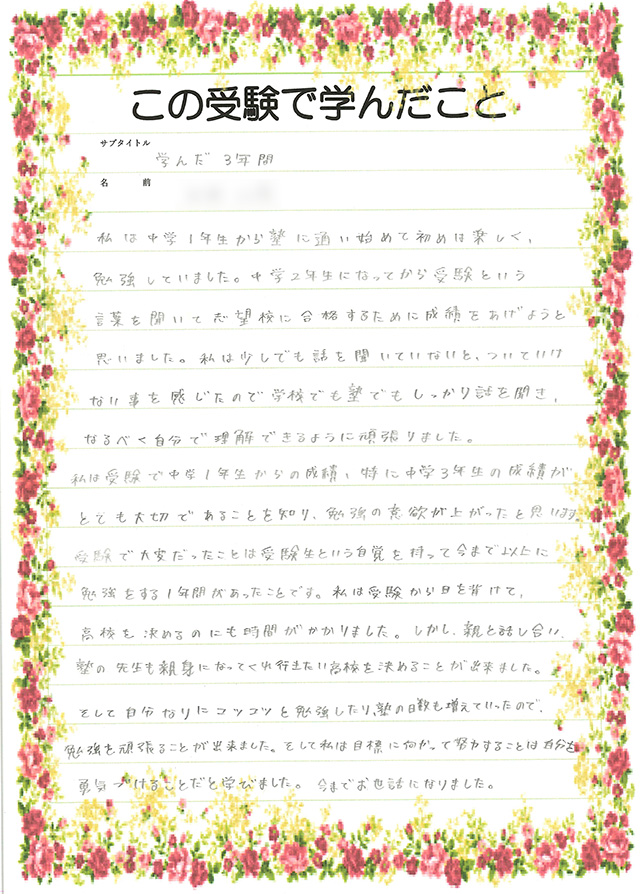 この受験で学んだこと
サブタイトル
学んだ 3年間
名 前
私は中学1年生から塾に通い始めて初めは楽しく、
勉強していました。中学2年生になってから受験という
言葉を聞いて志望校に合格するために成績をあげようと
思いました。私は少しでも話を聞いていないと、ついていけ
ない事を感じたので学校でも塾でもしっかり話を聞き、
なるべく自分で理解できるように頑張りました。
私は受験で中学1年生からの成績、特に中学3年生の成績が
とても大切であることを知り、勉強の意欲が上がったと思います。
受験で大変だったことは受験生という自覚を持って今まで以上に
勉強をする1年間があったことです。私は受験から目を背けて、
高校を決めるのにも時間がかかりました。しかし、親と話し合い、
塾の先生も親身になってくれ行きたい高校を決めることが出来ました。
そして自分なりにコツコツと勉強したり、塾の日数も増えていったので、
勉強を頑張ることが出来ました。そして私は目標に向かって努力することは自分を
勇気づけることだと学びました。今までお世話になりました。